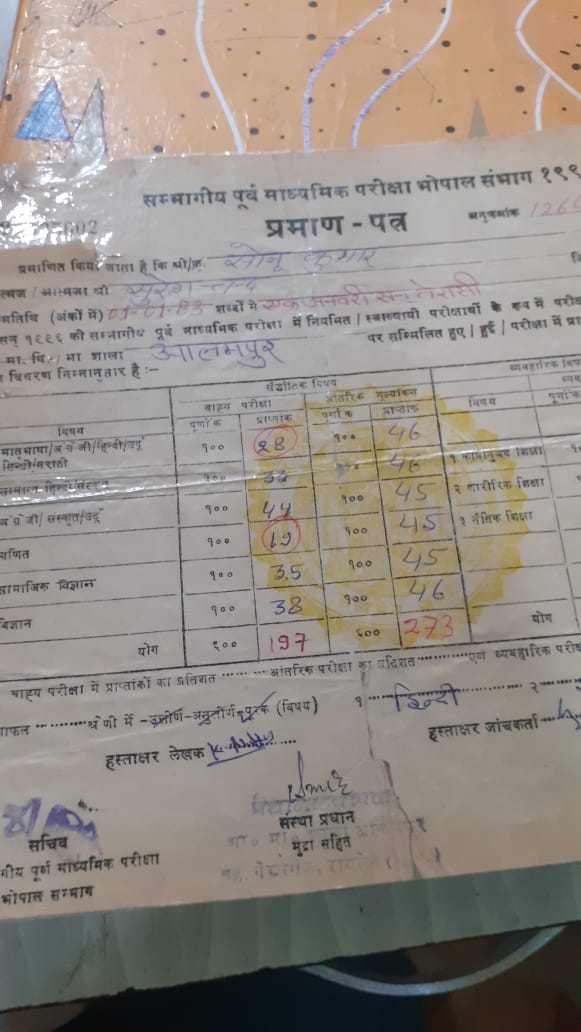 सम्भागीय पूर्व माध्यमिक परीक्षा भोपाल संभाग १९९
602
प्रमाण - पत्र
अनुक्रमांक 126
प्रमाणित किया जाता है कि श्री/कु. सोनू कुमार
त्मज / आत्मजा श्री सुरेश चन्द
मतिथि (अंकों में) 01-01-83 शब्दों में एक जनवरी सन् तेरासी
सन् १९९६ की सम्भागीय पूर्व माध्यमिक परीक्षा में नियमित / स्वाध्यायी परीक्षार्थी के रूप में परी
मा. वि./ मा शाला आलमपुर पर सम्मिलित हुए / हुई / परीक्षा में प्रा
विवरण निम्नानुसार है :-
सैद्धांतिक विषय व्यवहारिक विष
बाह्य परीक्षा आंतरिक मूल्यांकन व्यव
विषय पूर्णांक प्राप्तांक पूर्णांक प्राप्तांक विषय पूर्णांक
मातृभाषा/अंग्रेजी/हिन्दी/उर्दू १०० 28 १०० 46
सिन्धी/मराठी
सामान्य हिन्दी/संस्कृत १०० 33 १०० 46 १
अंग्रेजी/ संस्कृत/उर्दू १०० 44 १०० 45 २ शारीरिक शिक्षा
गणित १०० 19 १०० 45 ३ नैतिक शिक्षा
सामाजिक विज्ञान १०० 35 १०० 45
विज्ञान १०० 38 १०० 46
योग ६०० 197 ६०० 273 योग
बाह्य परीक्षा में प्राप्तांकों का प्रतिशत ........ आंतरिक परीक्षा का प्रतिशत ........ एवं व्यवहारिक परीक्ष
ाफल ........ श्रेणी में -उत्तीर्ण-अनुत्तीर्ण-पूरक (विषय) १ हिन्दी २
हस्ताक्षर लेखक हस्ताक्षर जांचकर्ता
संस्था प्रधान
मुद्रा सहित
सचिव
गीय पूर्व माध्यमिक परीक्षा
भोपाल सम्भाग